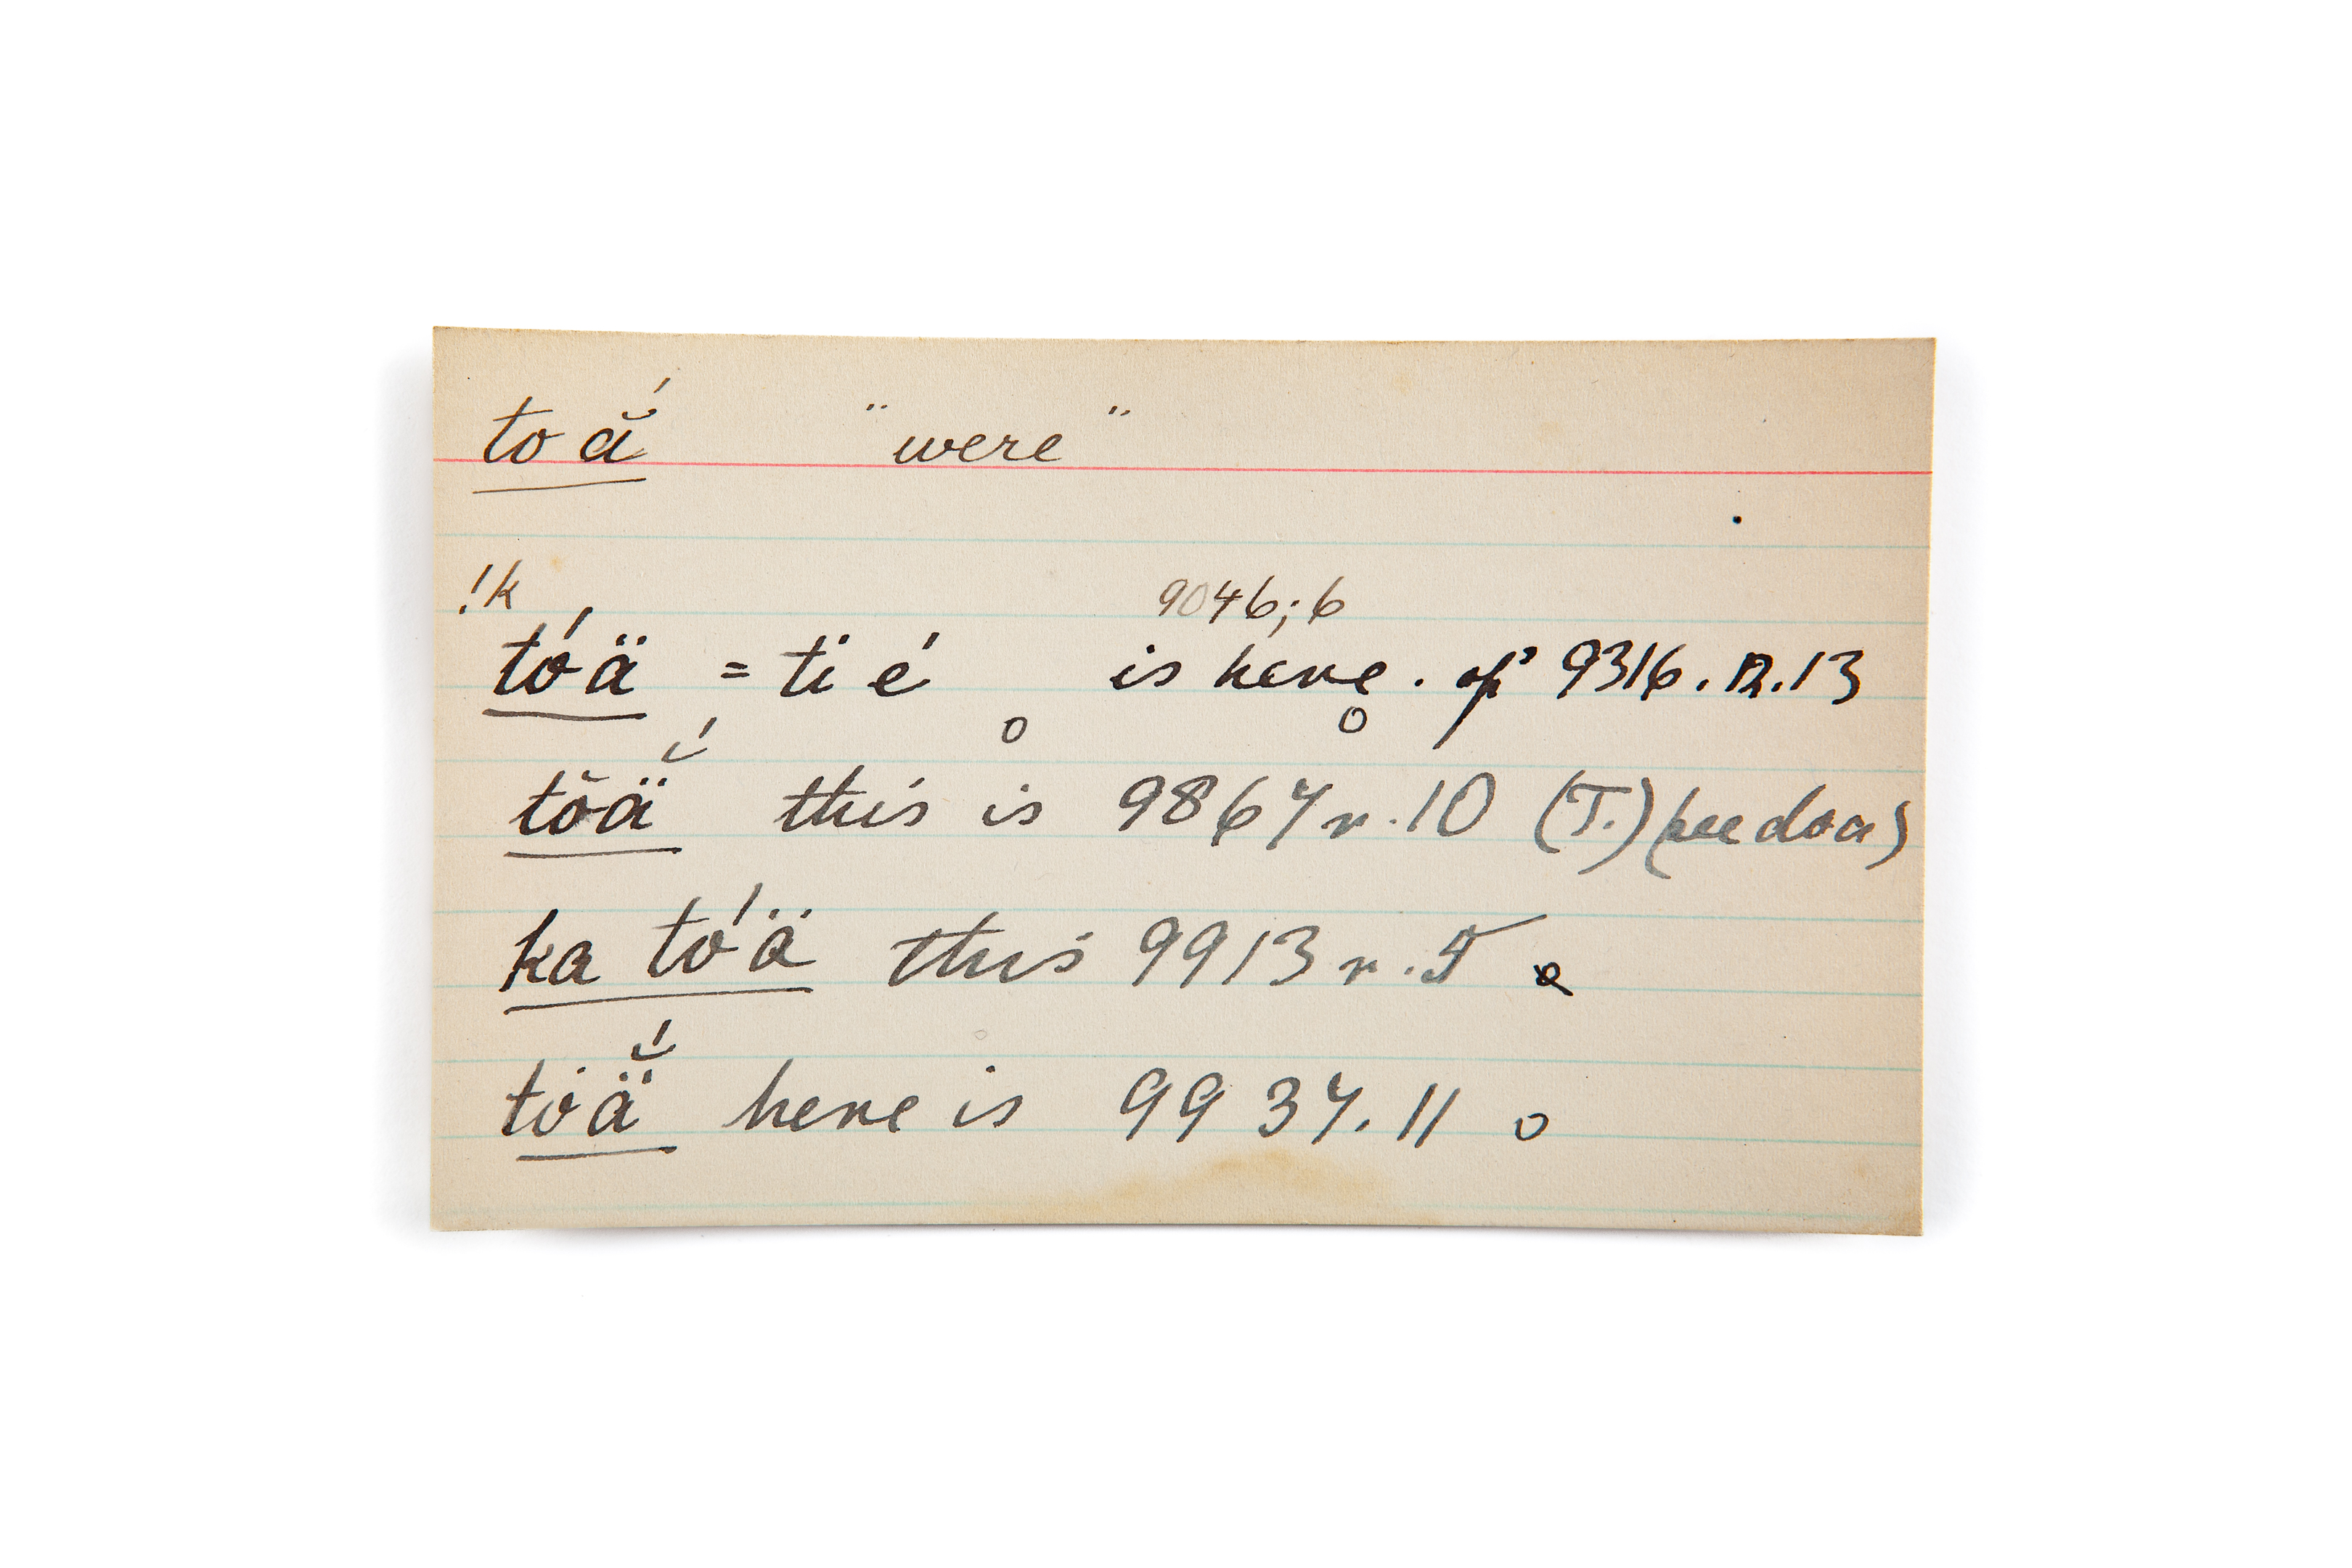 to ä̆́ "were"
!k 9046; 6
tó ä = ti é is here. of 9316. n. 13
tõä̆́ this is 9867 r. 10 (T.) (see doa)
ka tó ä this 9913 r. 5
to ä̆́ here is 9937. 11 o